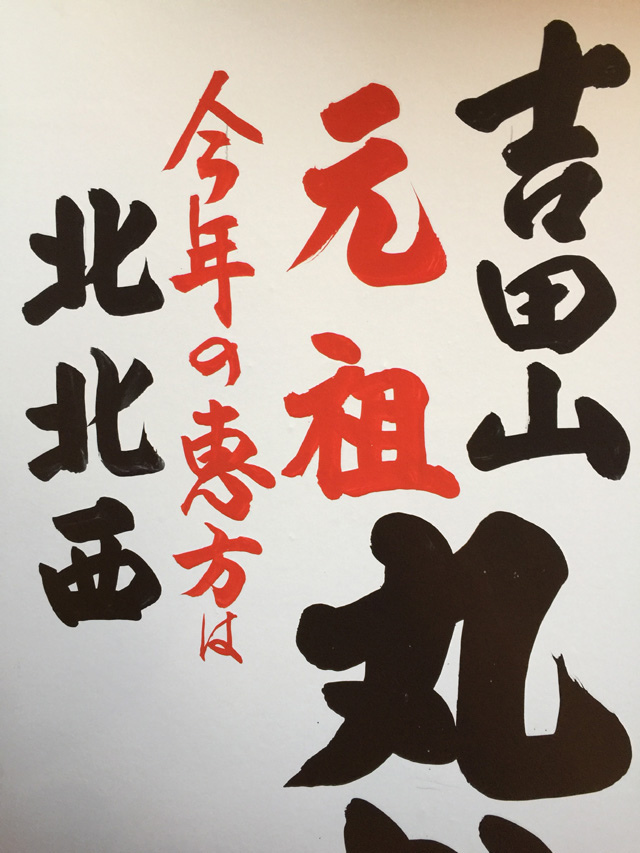 吉田山
元祖丸
今年の恵方は
北北西